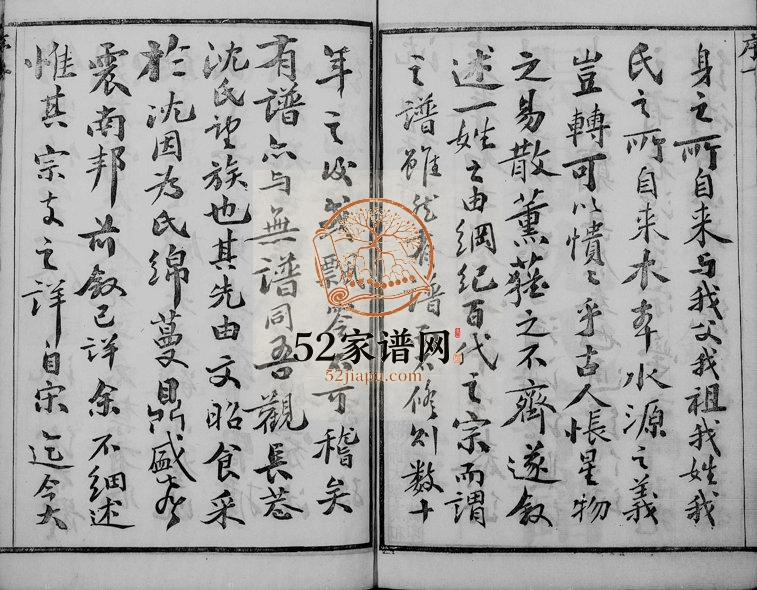 序一
身之所自来与我父我祖我姓我
氏之所自来木本水源之義
豈轉可以憒〻乎古人悵星物
之易散薰蕕之不齊遂叙
述一姓之由綱纪百代之宗而謂
之譜雖然有譜不修则数十
年之後其飄零不可稽矣
有譜亦与無譜同吾觀長巷
沈氏望族也其先由文昭食采
於沈因為氏綿蔓鼎盛者
震南邦前叙已詳余不細述
惟其宗支之詳自宋迄今大
52家谱网
52jiapu.com